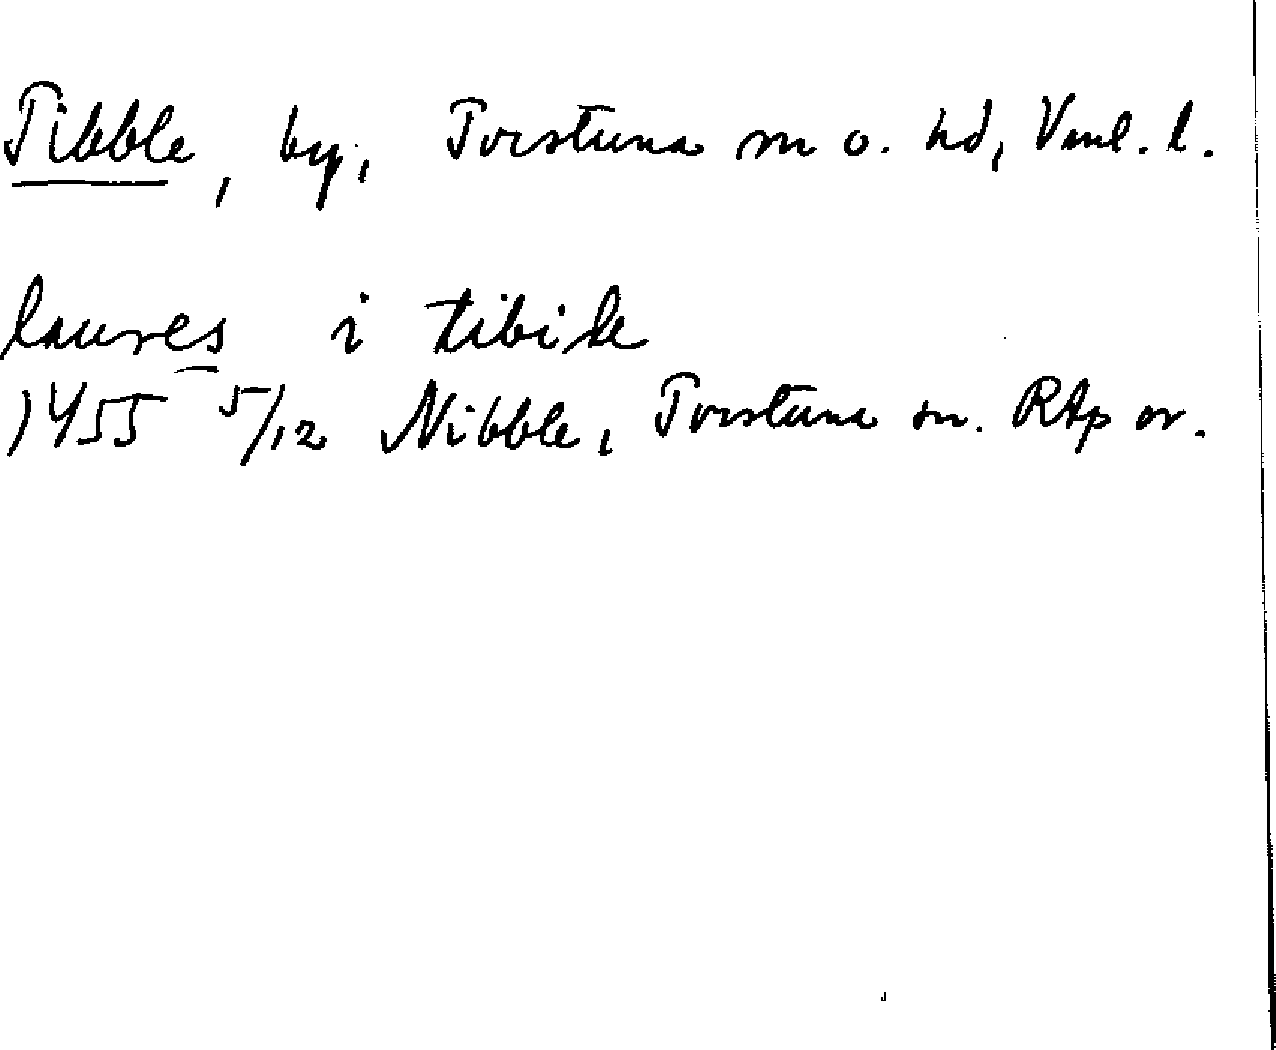 Tibble, by, Torstuna sn o. hd, Vml. l.
laures i tibile
1455 5/12 Nibble, Torstuna sn. RAp or.